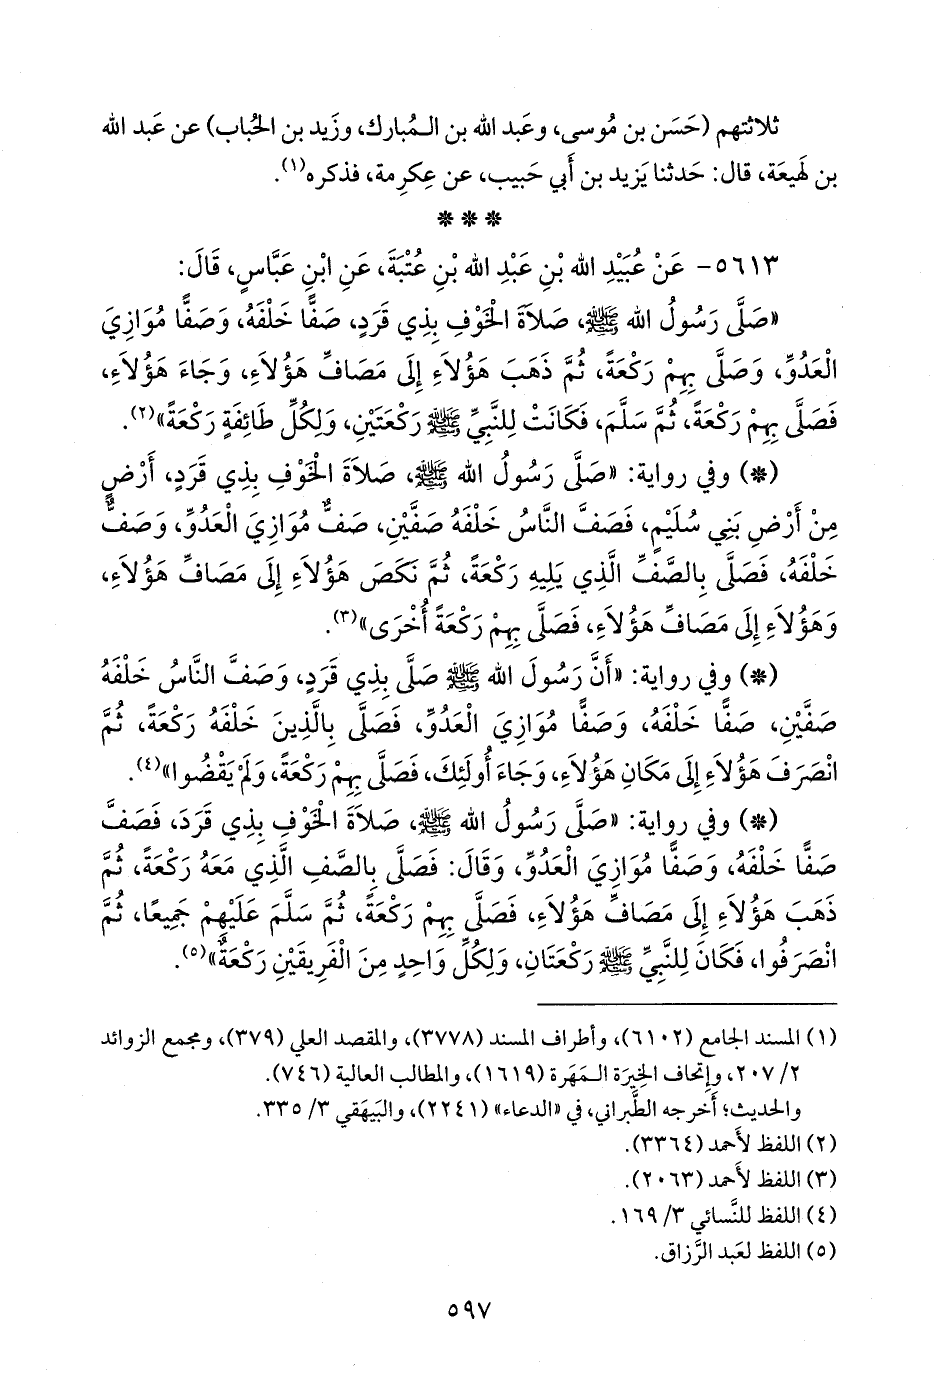 ثلاثتهم (حَسَن بن مُوسى، وعَبد الله بن المُبارك، وزَيد بن الحُباب) عن عَبد الله
بن لَهيعَة، قال: حَدثنا يَزيد بن أَبي حَبيب، عن عِكرِمة، فذكره(١).
***
٥٦١٣- عَنْ عُبَيْدِ الله بْنِ عَبْدِ الله بْنِ عُتْبَةَ، عَنِ ابْنِ عَبَّاسٍ، قَالَ:
«صَلَّى رَسُولُ الله ﷺ، صَلاَةَ الْخَوْفِ بِذِي قَرَدٍ، صَفًّا خَلْفَهُ، وَصَفًّا مُوَازِيَ
الْعَدُوِّ، وَصَلَّى بِهِمْ رَكْعَةً، ثُمَّ ذَهَبَ هَؤُلاَءِ إِلَى مَصَافِّ هَؤُلاَءِ، وَجَاءَ هَؤُلاَءِ،
فَصَلَّى بِهِمْ رَكْعَةً، ثُمَّ سَلَّمَ، فَكَانَتْ لِلنَّبِيِّ ﷺ رَكْعَتَيْنِ، وَلِكُلِّ طَائِفَةٍ رَكْعَةً»(٢).
(*) وفي رواية: «صَلَّى رَسُولُ الله ﷺ، صَلاَةَ الْخَوْفِ بِذِي قَرَدٍ، أَرْضٍ
مِنْ أَرْضِ بَنِي سُلَيْمٍ، فَصَفَّ النَّاسُ خَلْفَهُ صَفَّيْنِ، صَفٌّ مُوَازِيَ الْعَدُوِّ، وَصَفٌّ
خَلْفَهُ، فَصَلَّى بِالصَّفِّ الَّذِي يَلِيهِ رَكْعَةً، ثُمَّ نَكَصَ هَؤُلاَءِ إِلَى مَصَافِّ هَؤُلاَءِ،
وَهَؤُلاَءِ إِلَى مَصَافِّ هَؤُلاَءِ، فَصَلَّى بِهِمْ رَكْعَةً أُخْرَى»(٣).
(*) وفي رواية: «أَنَّ رَسُولَ الله ﷺ صَلَّى بِذِي قَرَدٍ، وَصَفَّ النَّاسُ خَلْفَهُ
صَفَّيْنِ، صَفًّا خَلْفَهُ، وَصَفًّا مُوَازِيَ الْعَدُوِّ، فَصَلَّى بِالَّذِينَ خَلْفَهُ رَكْعَةً، ثُمَّ
انْصَرَفَ هَؤُلاَءِ إِلَى مَكَانِ هَؤُلاَءِ، وَجَاءَ أُولَئِكَ، فَصَلَّى بِهِمْ رَكْعَةً، وَلَمْ يَقْضُوا»(٤).
(*) وفي رواية: «صَلَّى رَسُولُ الله ﷺ، صَلاَةَ الْخَوْفِ بِذِي قَرَدَ، فَصَفَّ
صَفًّا خَلْفَهُ، وَصَفًّا مُوَازِيَ الْعَدُوِّ، وَقَالَ: فَصَلَّى بِالصَّفِ الَّذِي مَعَهُ رَكْعَةً، ثُمَّ
ذَهَبَ هَؤُلاَءِ إِلَى مَصَافِّ هَؤُلاَءِ، فَصَلَّى بِهِمْ رَكْعَةً، ثُمَّ سَلَّمَ عَلَيْهِمْ جَمِيعًا، ثُمَّ
انْصَرَفُوا، فَكَانَ لِلنَّبِيِّ ﷺ رَكْعَتَانِ، وَلِكُلِّ وَاحِدٍ مِنَ الْفَرِيقَيْنِ رَكْعَةٌ»(٥).
(١) المسند الجامع (٦١٠٢)، وأطراف المسند (٣٧٧٨)، والمقصد العلي (٣٧٩)، ومجمع الزوائد
٢/ ٢٠٧، وإتحاف الخِيرَة المَهَرة (١٦١٩)، والمطالب العالية (٧٤٦).
والحديث؛ أخرجه الطَّبراني، في «الدعاء» (٢٢٤١)، والبَيهَقي ٣/ ٣٣٥.
(٢) اللفظ لأَحمد (٣٣٦٤).
(٣) اللفظ لأَحمد (٢٠٦٣).
(٤) اللفظ للنَّسائي ٣/ ١٦٩.
(٥) اللفظ لعَبد الرَّزاق.
٥٩٧